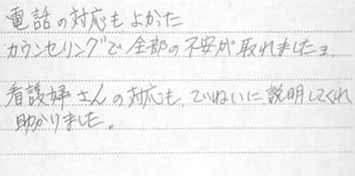 電話の対応もよかった
カウンセリングで全部の不安が取れましたヨ
看護婦さんの対応も、ていねいに説明してくれ
助かりました。